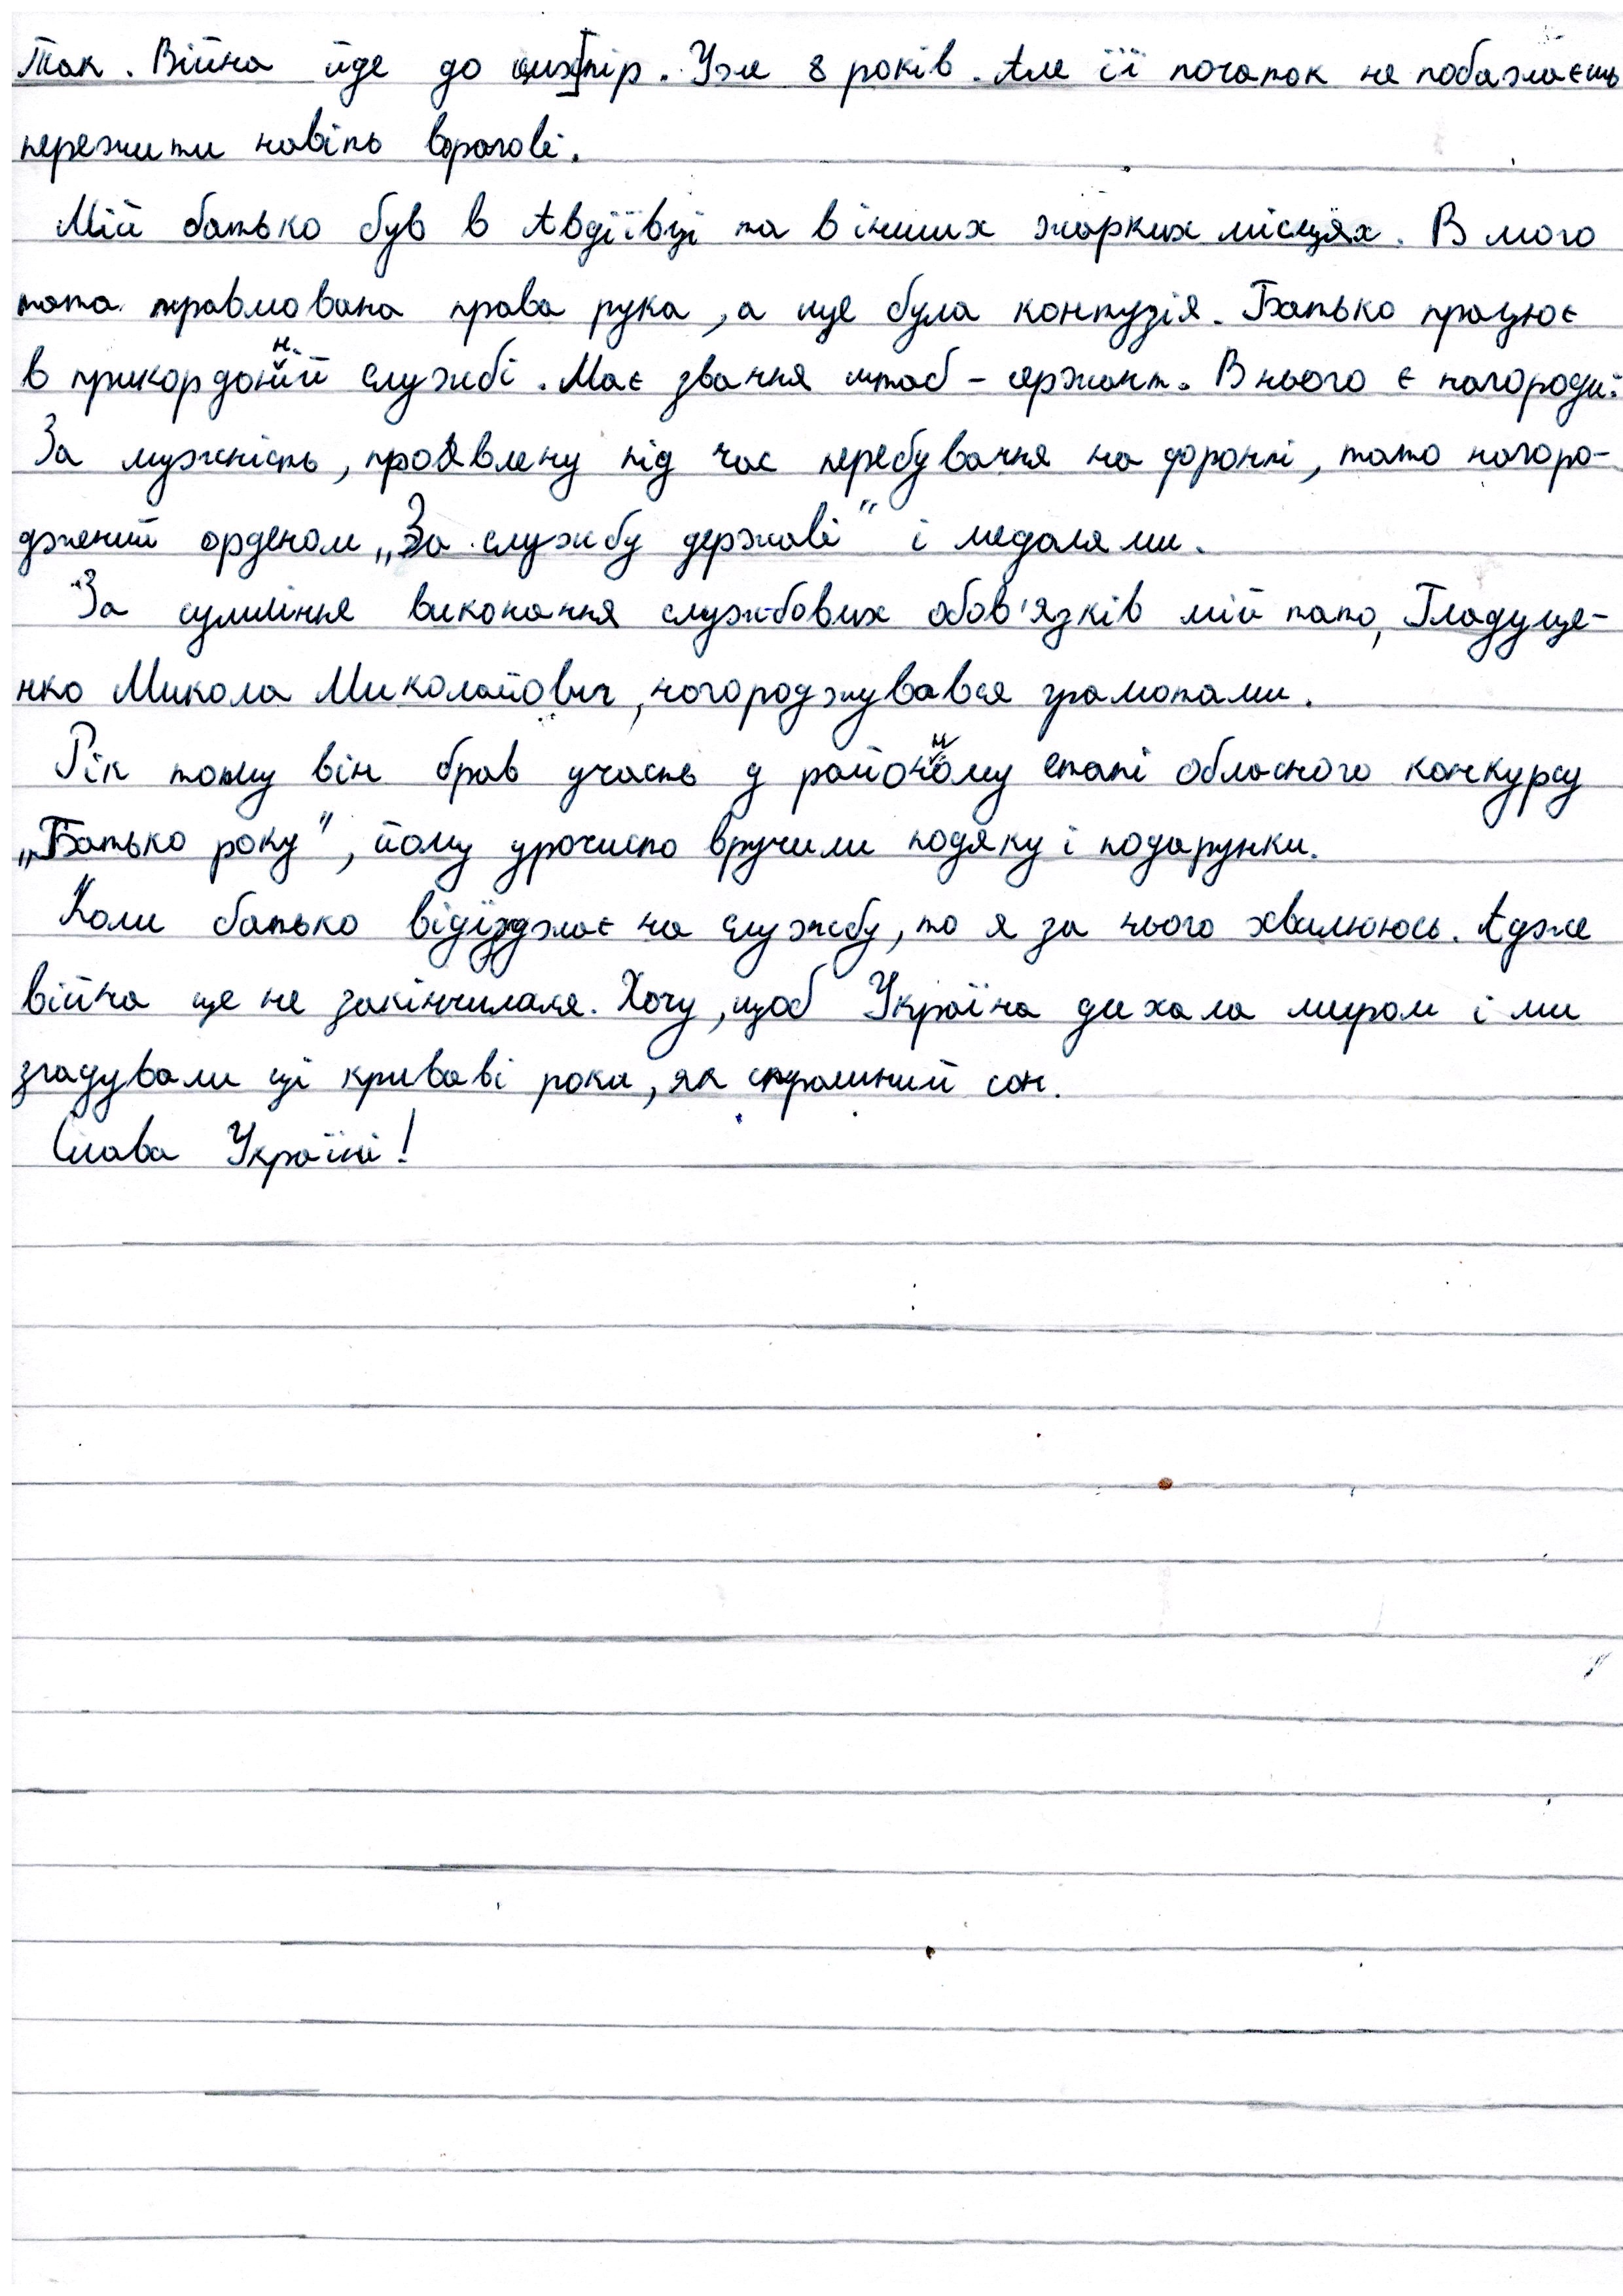 Так. Війна йде до цих пір. Уже 8 років. Але її початок не побажаєш
пережити навіть ворогові.
Мій батько був в Авдіївці та в інших жарких місцях. В мого
тата травмована права рука, а ще була контузія. Батько працює
в прикордонній службі. Має звання штаб-сержант. В нього є нагороди:
За мужність, проявлену під час перебування на форонті, тато нагоро-
джений орденом „За службу державі" і медалями.
За сумлінне виконання службових обов'язків мій тато, Гладуще-
нко Микола Миколайович, нагороджувався грамотами.
Рік тому він брав участь у районному етапі обласного конкурсу
„Батько року", йому урочисто вручили подяку і подарунки.
Коли батько відїзджає на службу, то я за нього хвилююсь. Адже
війна ще не закінчилася. Хочу, щоб Україна дихала миром і ми
згадували ці криваві роки, як страшний сон.
Слава Україні!